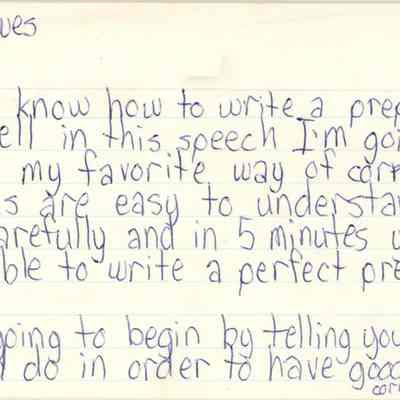 ues
know how to write a prep
ell in this speech I'm goi
my favorite way of corr
s are easy to understa
arefully and in 5 minutes
ble to write a perfect pre
going to begin by telling you
I do in order to have good